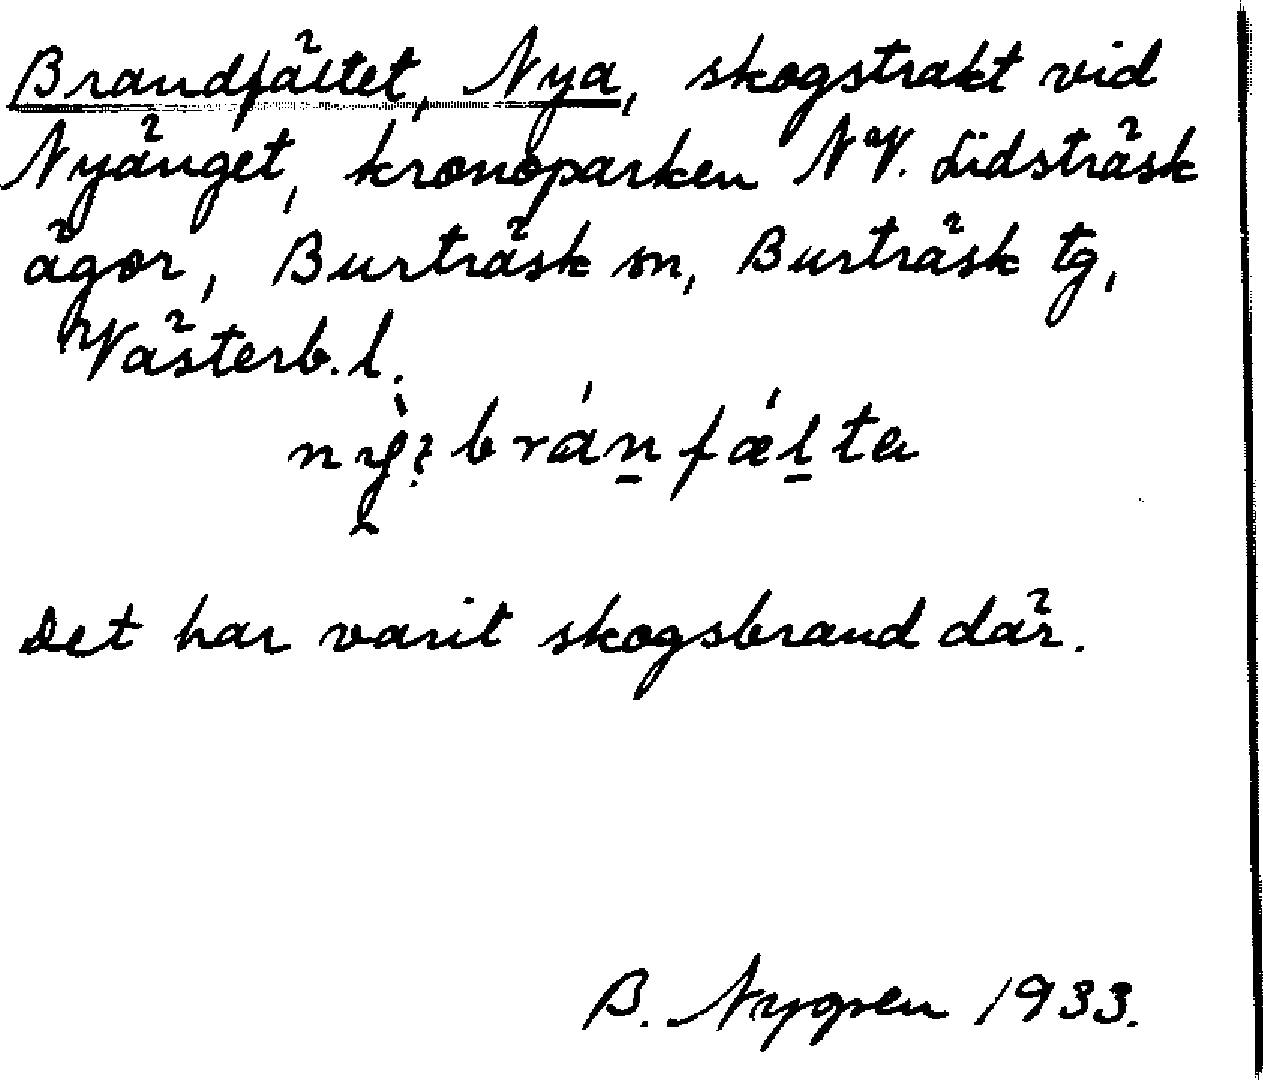 Brandfältet, Nya, skogstrakt vid
Nyänget, kronoparken NV. Lidsträsk
ägor, Burträsk sn, Burträsk tg,
Västerb. l.
Det har varit skogsbrand där.
B. Nygren 1933.